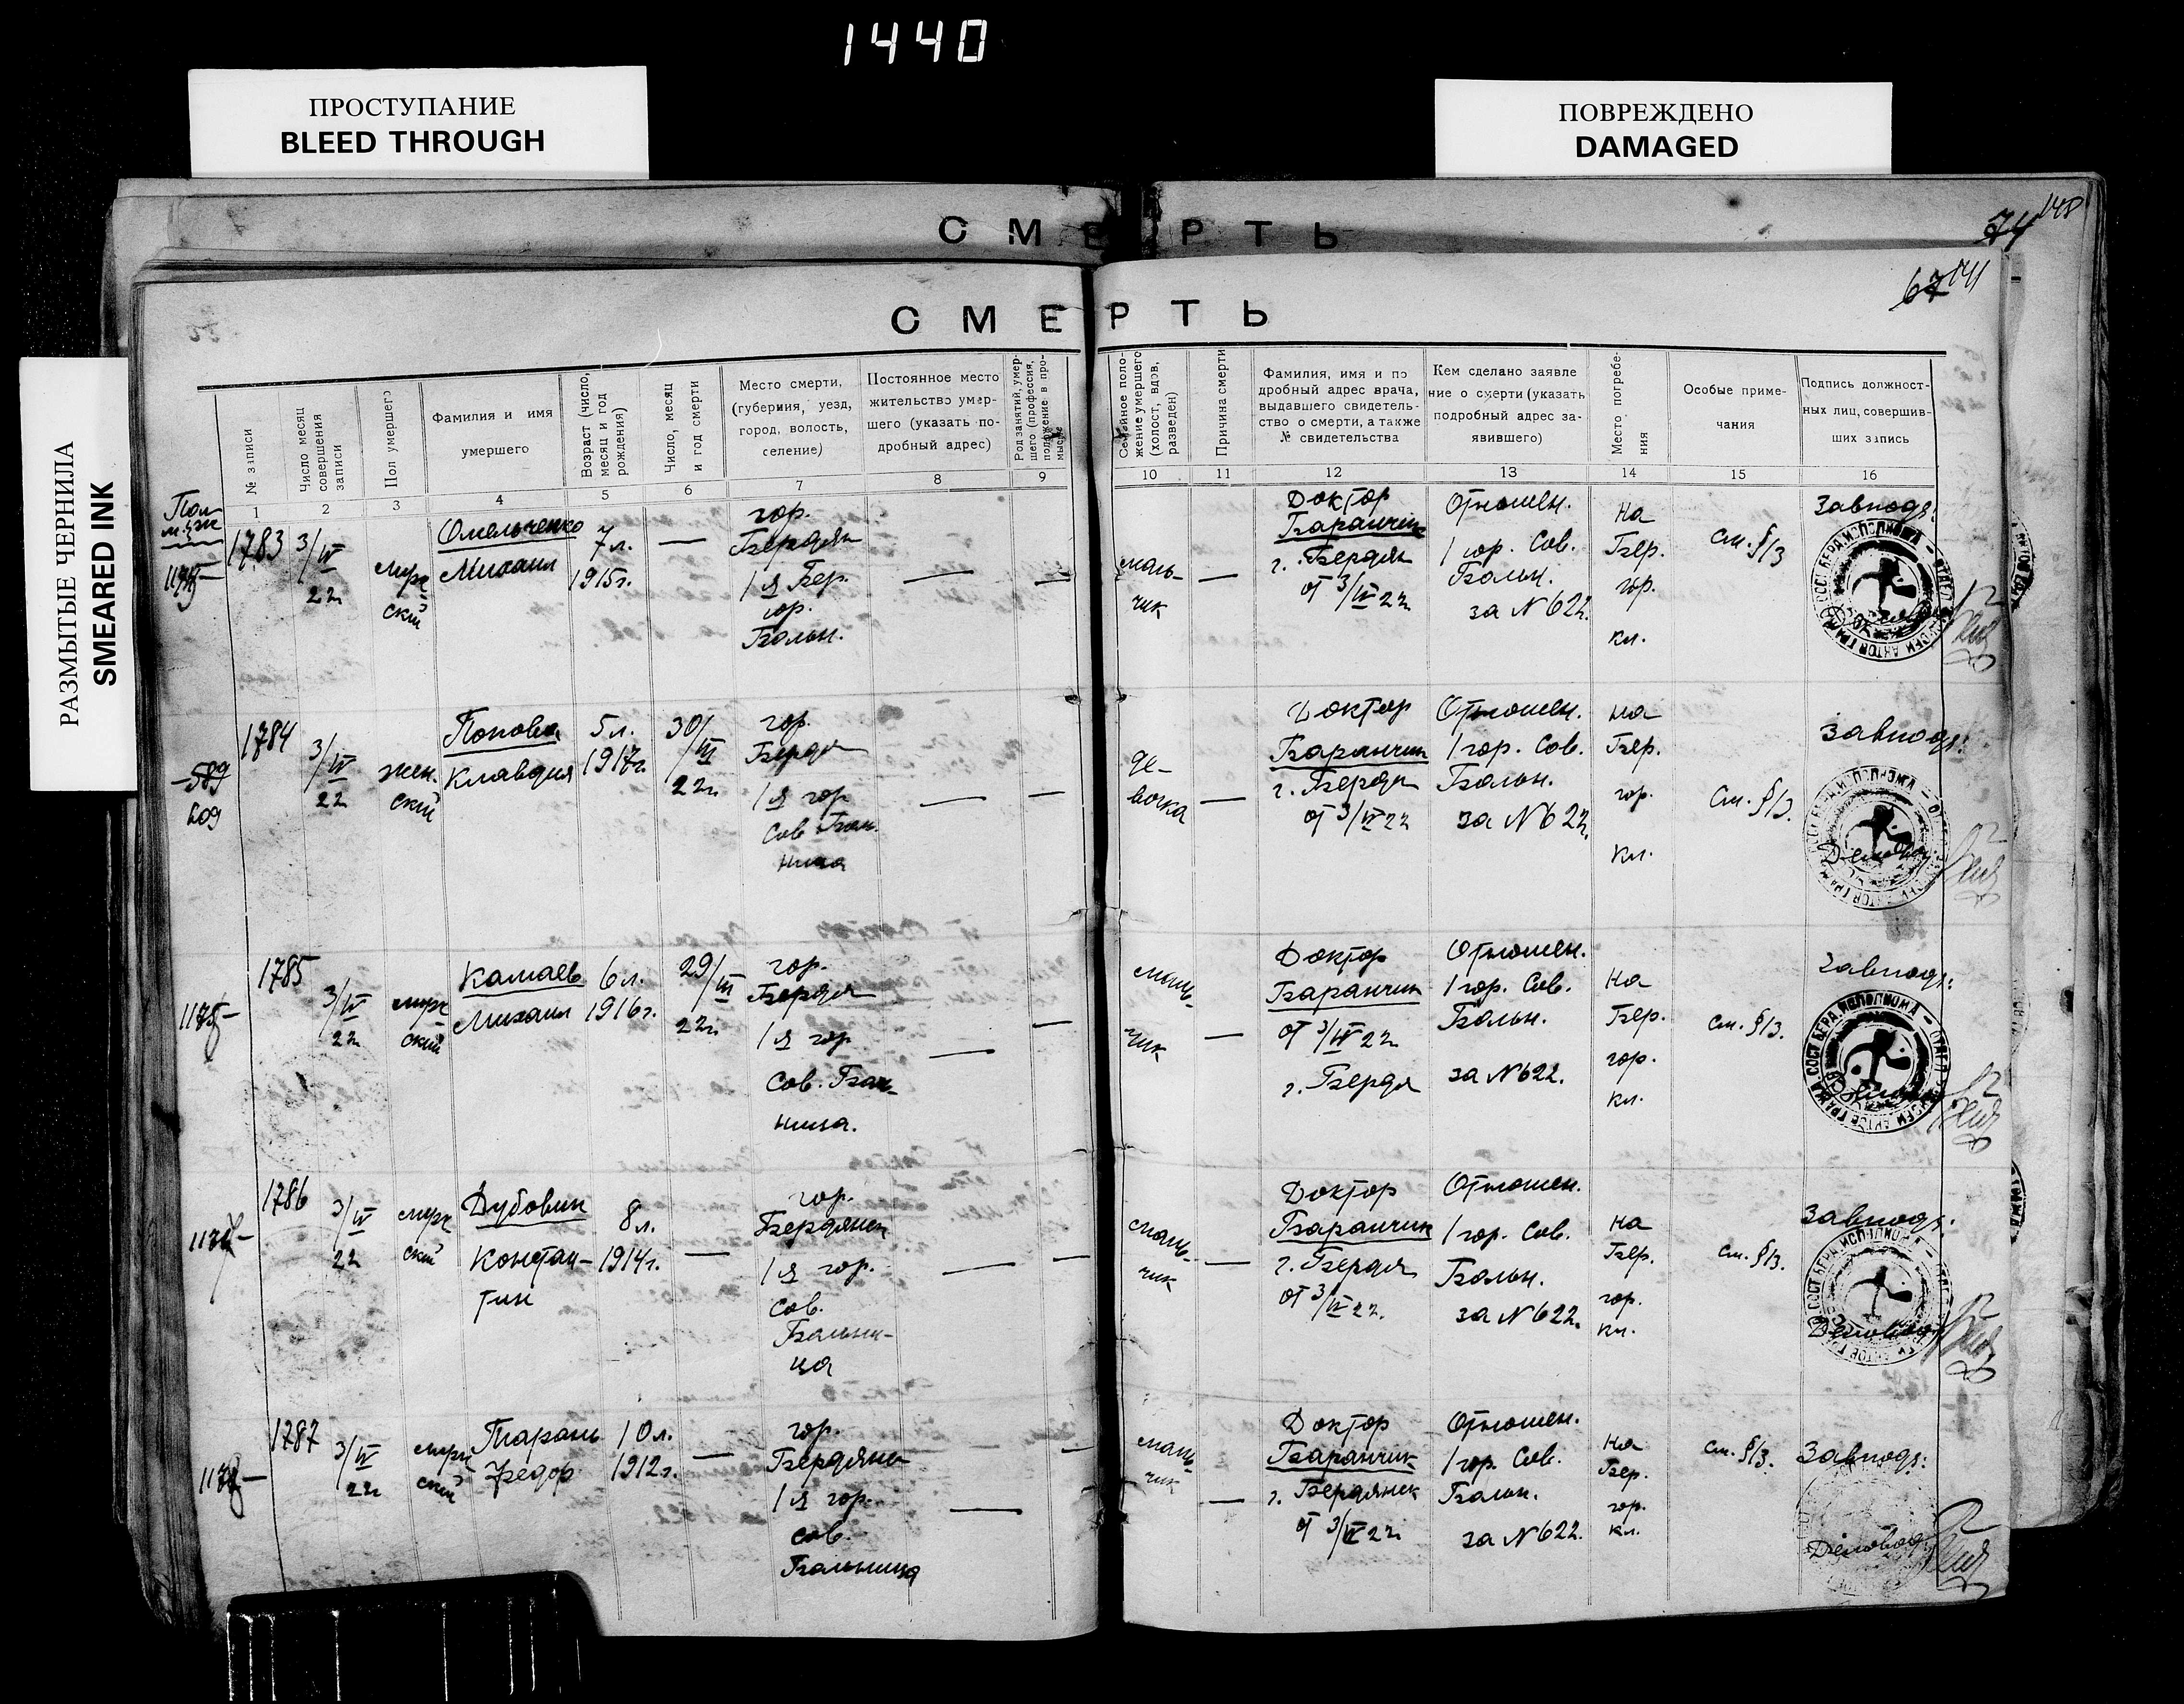 1440
ПРОСТУПАНИЕ
BLEED THROUGH
ПОВРЕЖДЕНО
DAMAGED
РАЗМЫТЫЕ ЧЕРНИЛА
SMEARED INK
СМЕРТЬ
74 148
67 141
СМЕРТЬ
№ записи
Число месяц совершения записи
Пол умершего
Фамилия и имя умершего
Возраст (число, месяц и год рождения)
Число, месяц и год смерти
Место смерти, (губерния, уезд, город, волость, селение)
Постоянное место жительство умершего (указать подробный адрес)
Род занятий, умершего (профессия, положение в промысле
Семейное положение умершего (холост, вдов, разведен)
Причина смерти
Фамилия, имя и подробный адрес врача, выдавшего свидетельство о смерти, а также № свидетельства
Кем сделано заявление о смерти (указать подробный адрес заявившего)
Место погребения
Особые примечания
Подпись должностных лиц, совершивших запись
1 2 3 4 5 6 7 8 9 10 11 12 13 14 15 16
Пол
м. ж
1783
3/IV
22
муж
ский
Омельченко
Михаил
7 л.
1915 г.
—
гор.
Бердян
1 я Бер.
гор.
Больн.
—
—
маль-
чик
—
Доктор
Баранчик
г. Бердян
от 3/IV 22
Отношен.
1 гор. Сов.
Больн.
за N 622.
На
Бер.
гор.
кл.
см. §13
Завподз:
589
1784
3/IV
22
жен.
ский
Попова
Клавдия
5 л.
1917 г.
30/III
22 г.
гор.
Бердя
1 я гор
Сов. Боль
ница
—
—
де-
вочка
—
Доктор
Баранчик
г. Бердя
от 3/IV 22
Отношен.
1 гор. Сов.
Больн.
за N 622.
на
Бер.
гор.
кл.
См. §13.
Завподз:
1785
3/IV
22
муж
ский
Камаев
Михаил
6 л.
1916 г.
29/III
22 г.
гор.
Бердя
1 я гор
Сов. Боль-
ница.
—
—
маль-
чик
—
Доктор
Баранчик
от 3/IV 22
г. Бердя
Отношен.
1 гор. Сов.
Больн.
за N 622.
На
Бер.
гор.
кл.
см. §13.
Завподз:
1786
3/IV
22
муж
ский
Дубовик
Констан-
тин
8 л.
1914 г.
—
гор.
Бердянск
1 я гор.
Сов.
Больни-
ца
—
—
маль-
чик
—
Доктор
Баранчик
г. Бердя
от 3/IV 22.
Отношен.
1 гор. Сов.
Больн.
за N 622.
на
Бер.
гор.
кл.
см. §13.
Завподз:
1787
3/IV
22
муж
ский
Тарань
Федор
10 л.
1912 г.
—
гор.
Бердянс
1 я гор.
сов.
Больница
—
—
маль-
чик
—
Доктор
Баранчик
г. Бердянск
от 3/IV 22
Отношен.
1 гор. Сов.
Больн.
за N 622.
На
Бер.
гор.
кл.
см. §13.
Завподз: